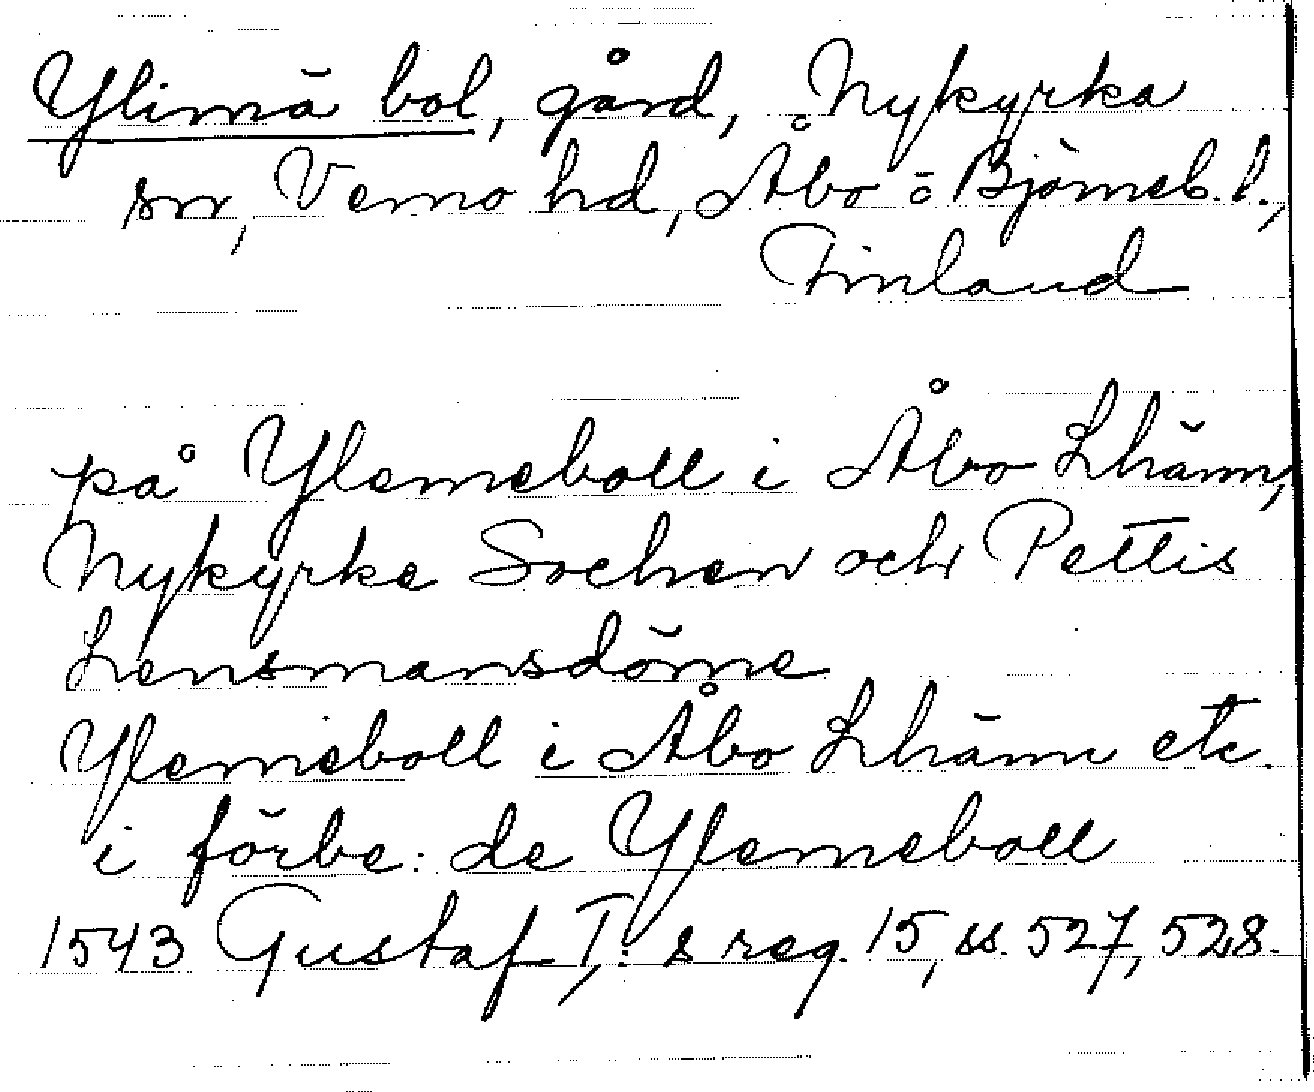 Ylimä bol, gård, Nykyrka
sn, Vemo hd, Åbo o Björneb. l.,
Finland
på Ylemeboll i Åbo Lhänn,
Nykyrke Sochen och Pettis
Lensmansdöme
Ylemeboll i Åbo Lhänn etc.
i förbe: de Ylemeboll
1543 Gustaf I:s reg. 15, ss. 527, 528.